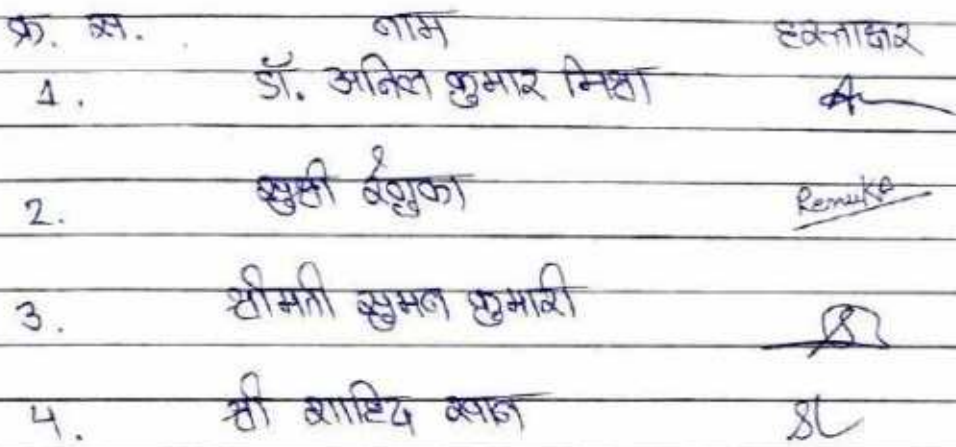 क्र. स. नाम हस्ताक्षर
1. डॉ. अनिल कुमार मिश्रा
2. सुश्री रेणुका Renuka
3. श्रीमती सुमन कुमारी
4. श्री शाहिद खान